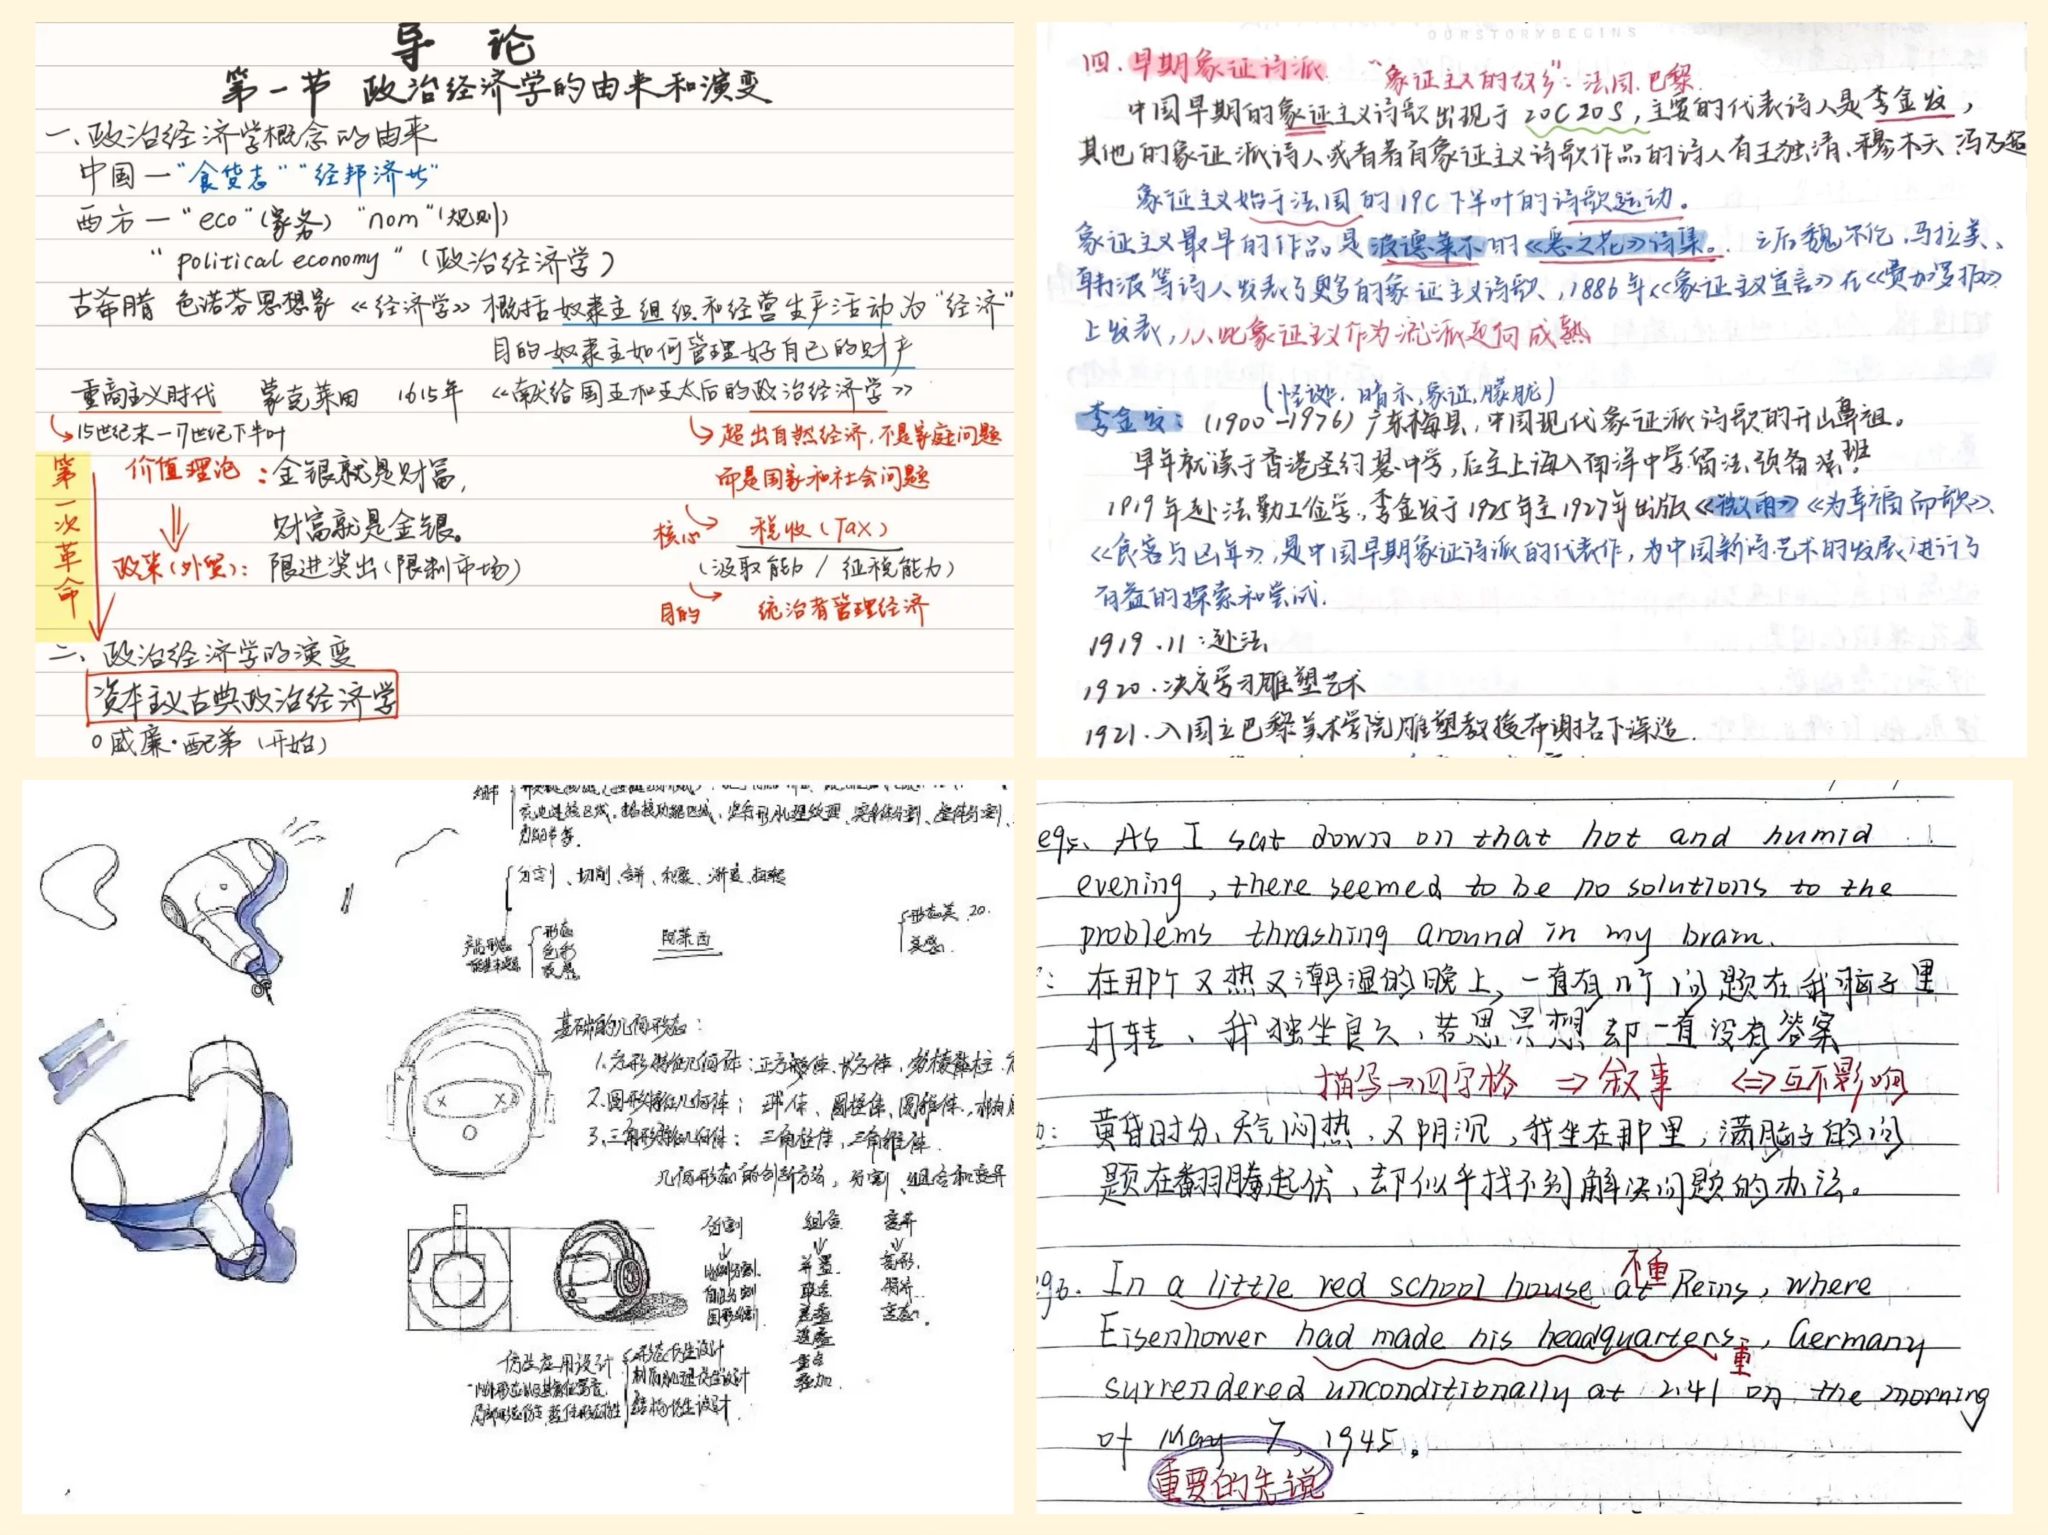 导 论
第一节 政治经济学的由来和演变
一、政治经济学概念的由来
中国一"食货志""经邦济世"
西方一"eco"(家务) "nom"(规则)
"political economy"(政治经济学)
古希腊 色诺芬思想家《经济学》概括奴隶主组织和经营生产活动为"经济"
目的奴隶主如何管理好自己的财产
重商主义时代 蒙克莱田 1615年《献给国王和王太后的政治经济学》
15世纪末一17世纪下半叶
超出自然经济,不是家庭问题
而是国家和社会问题
第一次革命
价值理论:金银就是财富,
财富就是金银。
核心 税收(Tax)
政策(外贸):限进奖出(限制市场)
(汲取能力/征税能力)
目的 统治者管理经济
二、政治经济学的演变
资本主义古典政治经济学
○威廉·配第(开始)
OURSTORYBEGINS
四.早期象征诗派 "象征主义的故乡":法国.巴黎
中国早期的象征主义诗歌出现于20C20S,主要的代表诗人是李金发,
其他的象征派诗人或者著有象征主义诗歌作品的诗人有王独清、穆木天、冯乃超
象征主义始于法国的19C下半叶的诗歌运动。
象征主义最早的作品是波德莱尔的《恶之花》诗集。之后魏尔伦、马拉美、
韩波等诗人发表了更多的象征主义诗歌、1886年《象征主义宣言》在《费加罗报》
上发表,从此象征主义作为流派走向成熟
(怪诞、暗示、象征、朦胧)
李金发:(1900-1976)广东梅县,中国现代象征派诗歌的开山鼻祖。
早年就读于香港圣约瑟中学,后至上海入南洋中学留法预备班
1919年赴法勤工俭学,李金发于1925年至1927年出版《微雨》《为幸福而歌》、
《食客与凶年》,是中国早期象征诗派的代表作,为中国新诗艺术的发展进行了
有益的探索和尝试.
1919.11:赴法
1920.决定学习雕塑艺术
1921.入国立巴黎美术学院雕塑教授布谢名下深造.
分割、切削、合并、积聚、渐变、扭转
形态美 20.
美感.
产品形态
形态
色彩
质感
阿莱西
基础的几何形态:
1.方形特征几何体:正方形体、长方体,
2.圆形特征几何体:球体、圆柱体、圆锥体.
3.三角形特征几何体:三角柱体,三角锥体.
几何形态的创新方法,分割、组合和变异
分割 组合 变异
比例分割.
自由分割
图形分割
并置
变形.
仿生应用设计
形态仿生设计
制肌理仿生设计
结构仿生设计
eg5. As I sat down on that hot and humid
evening, there seemed to be no solutions to the
problems thrashing around in my brain.
在那个又热又潮湿的晚上,一直有几个问题在我脑子里
打转、我独坐良久,苦思冥想却一直没有答案
描写→四字格 ⇒叙事 ⇔互不影响
黄昏时分,天气闷热,又阴沉,我坐在那里,满脑子的问
题在翻腾起伏、却似乎找不到解决问题的办法。
不重
eg6. In a little red school house at Reins, where
Eisenhower had made his headquarters, Germany
重
surrendered unconditionally at 2.41 on the morning
of May 7, 1945.
重要的先说